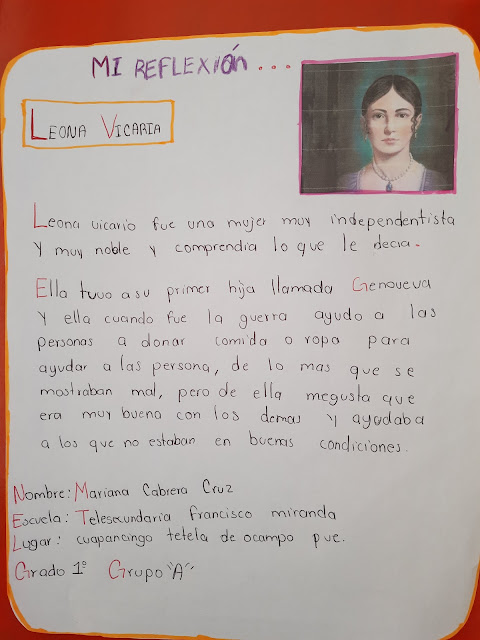 MI REFLEXIÓN...
LEONA VICARIA
Leona vicario fue una mujer muy independentista
y muy noble y comprendia lo que le decia.
Ella tuvo a su primer hija llamada Genoveva
Y ella cuando fue la guerra ayudo a las
personas a donar comida o ropa para
ayudar a las persona, de lo mas que se
mostraban mal, pero de ella megusta que
era muy buena con los demas y ayudaba
a los que no estaban en buenas condiciones.
Nombre: Mariana Cabrera Cruz
Escuela: Telesecundaria francisco miranda
Lugar: cuapancingo tetela de ocampo pue.
Grado 1° Grupo "A"